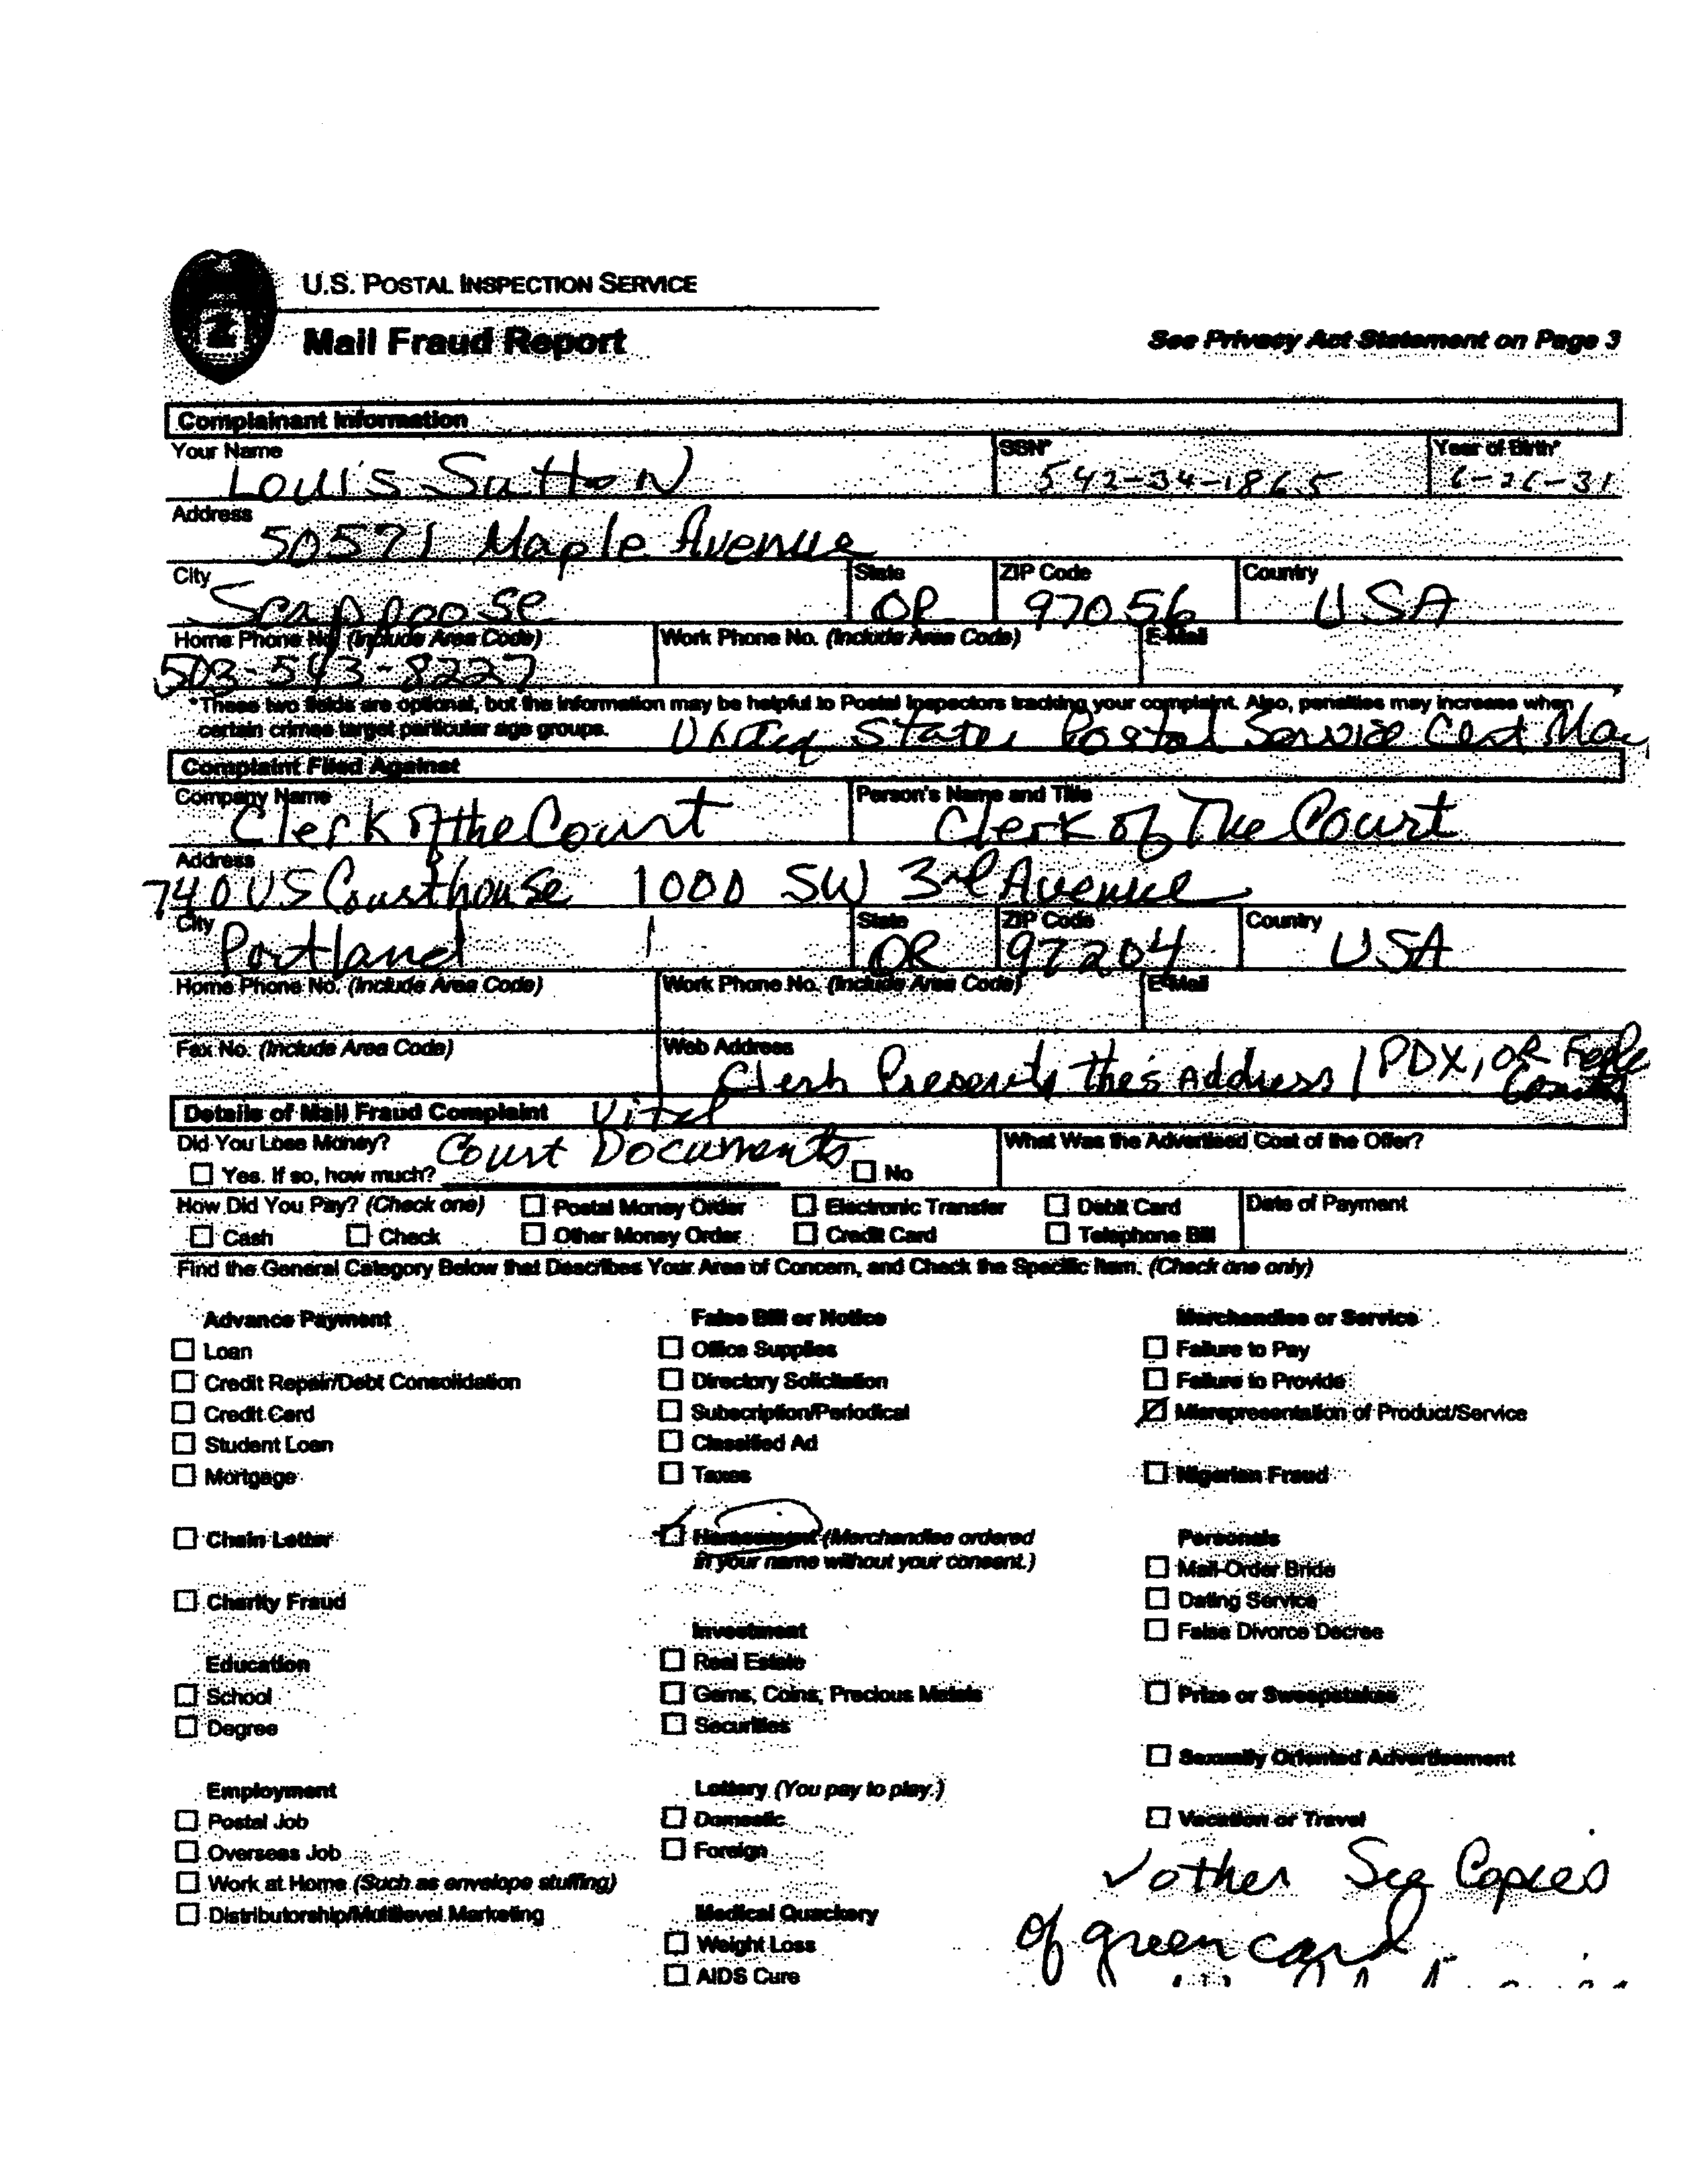 U.S. POSTAL INSPECTION SERVICE
Mail Fraud Report
See Privacy Act Statement on Page 3
Complainant Information
Your Name SSN* Year of Birth*
Louis Sutton 542-34-1865 6-26-31
Address
50571 Maple Avenue
City State ZIP Code Country
Scappoose OR 97056 USA
Home Phone No. (Include Area Code) Work Phone No. (Include Area Code) E-Mail
503-543-8227
*These two fields are optional, but the information may be helpful to Postal Inspectors tracking your complaint. Also, penalties may increase when
certain crimes target particular age groups.
United States Postal Service Cert
Complaint Filed Against
Company Name Person's Name and Title
Clerk of the Court Clerk of The Court
Address
740 US Courthouse 1000 SW 3rd Avenue
City State ZIP Code Country
Portland OR 97204 USA
Home Phone No. (Include Area Code) Work Phone No. (Include Area Code) E-Mail
Fax No. (Include Area Code) Web Address
Clerk Presents this Address / PDX, OR
Details of Mail Fraud Complaint Vital
Did You Lose Money? Court Documents What Was the Advertised Cost of the Offer?
Yes. If so, how much? No
How Did You Pay? (Check one) Postal Money Order Electronic Transfer Debit Card Date of Payment
Cash Check Other Money Order Credit Card Telephone Bill
Find the General Category Below that Describes Your Area of Concern, and Check the Specific Item. (Check one only)
Advance Payment
Loan
Credit Repair/Debt Consolidation
Credit Card
Student Loan
Mortgage
Chain Letter
Charity Fraud
Education
School
Degree
Employment
Postal Job
Overseas Job
Work at Home (Such as envelope stuffing)
Distributorship/Multilevel Marketing
False Bill or Notice
Office Supplies
Directory Solicitation
Subscription/Periodical
Classified Ad
Taxes
Harassment (Merchandise ordered
in your name without your consent.)
Investment
Real Estate
Gems, Coins, Precious Metals
Securities
Lottery (You pay to play.)
Domestic
Foreign
Medical Quackery
Weight Loss
AIDS Cure
Merchandise or Service
Failure to Pay
Failure to Provide
Misrepresentation of Product/Service
Nigerian Fraud
Personals
Mail-Order Bride
Dating Service
False Divorce Decree
Prize or Sweepstakes
Sexually Oriented Advertisement
Vacation or Travel
✓ other See Copies
of green card